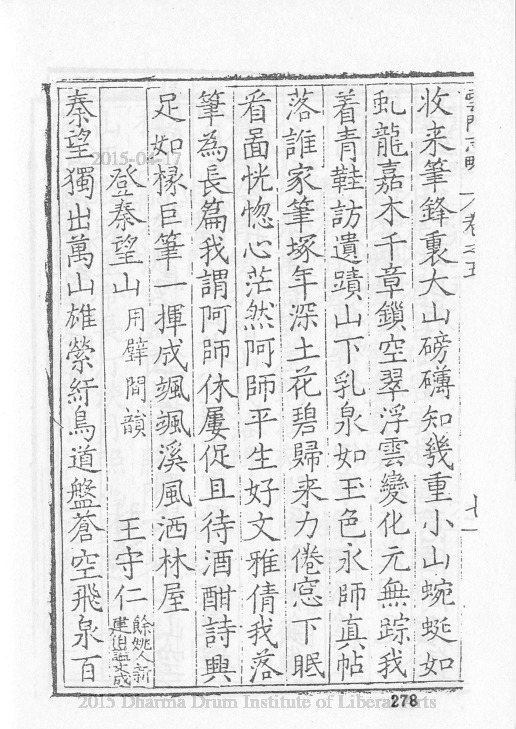 雲門志略 卷之五 七一
收来筆鋒裏大山磅礴知幾重小山蜿蜒如
虬龍嘉木千章鎖空翠浮雲變化元無踪我
着青鞋訪遺蹟山下乳泉如玉色永師真帖
落誰家筆塚年深土花碧歸来力倦窓下眠
看畵恍惚心茫然阿師平生好文雅倩我落
筆為長篇我謂阿師休屢促且待酒酣詩興
足如椽巨筆一揮成颯颯溪風洒林屋
登秦望山 用壁間韻 王守仁 餘姚人新建伯謚文成
秦望獨出萬山雄縈紆鳥道盤蒼空飛泉百
2015-04-17
278
2015 Dharma Drum Institute of Liberal Arts